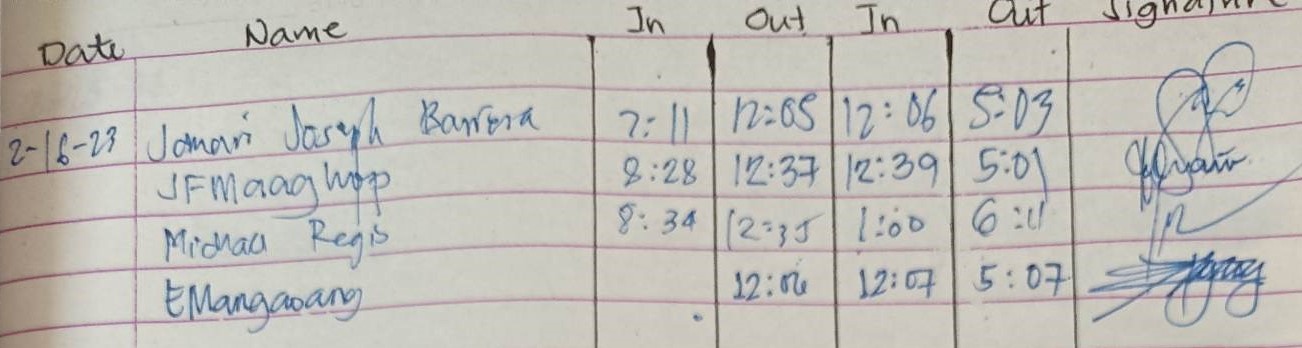 Date Name In Out In Out Signature
2-16-23 Jomari Joseph Barrera 7:11 12:05 12:06 5:03
JFMaaghop 8:28 12:37 12:39 5:01
Michael Regis 8:34 12:35 1:00 6:11
EMangaoang 12:06 12:07 5:07